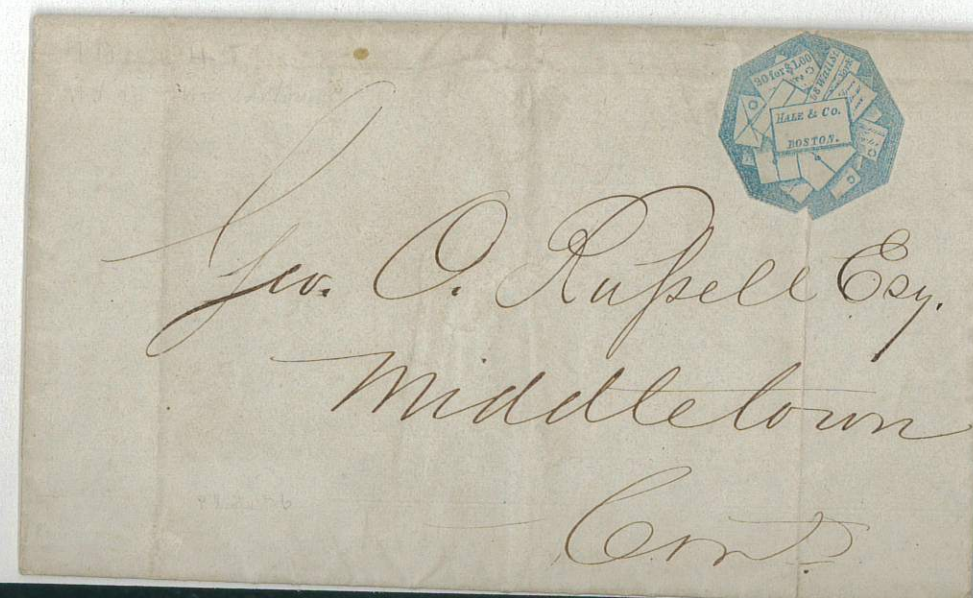 20 for $1.00
Wall St.
HALE & Co.
BOSTON.
Geo. O. Rufsell Esq.
Middletown
Con.